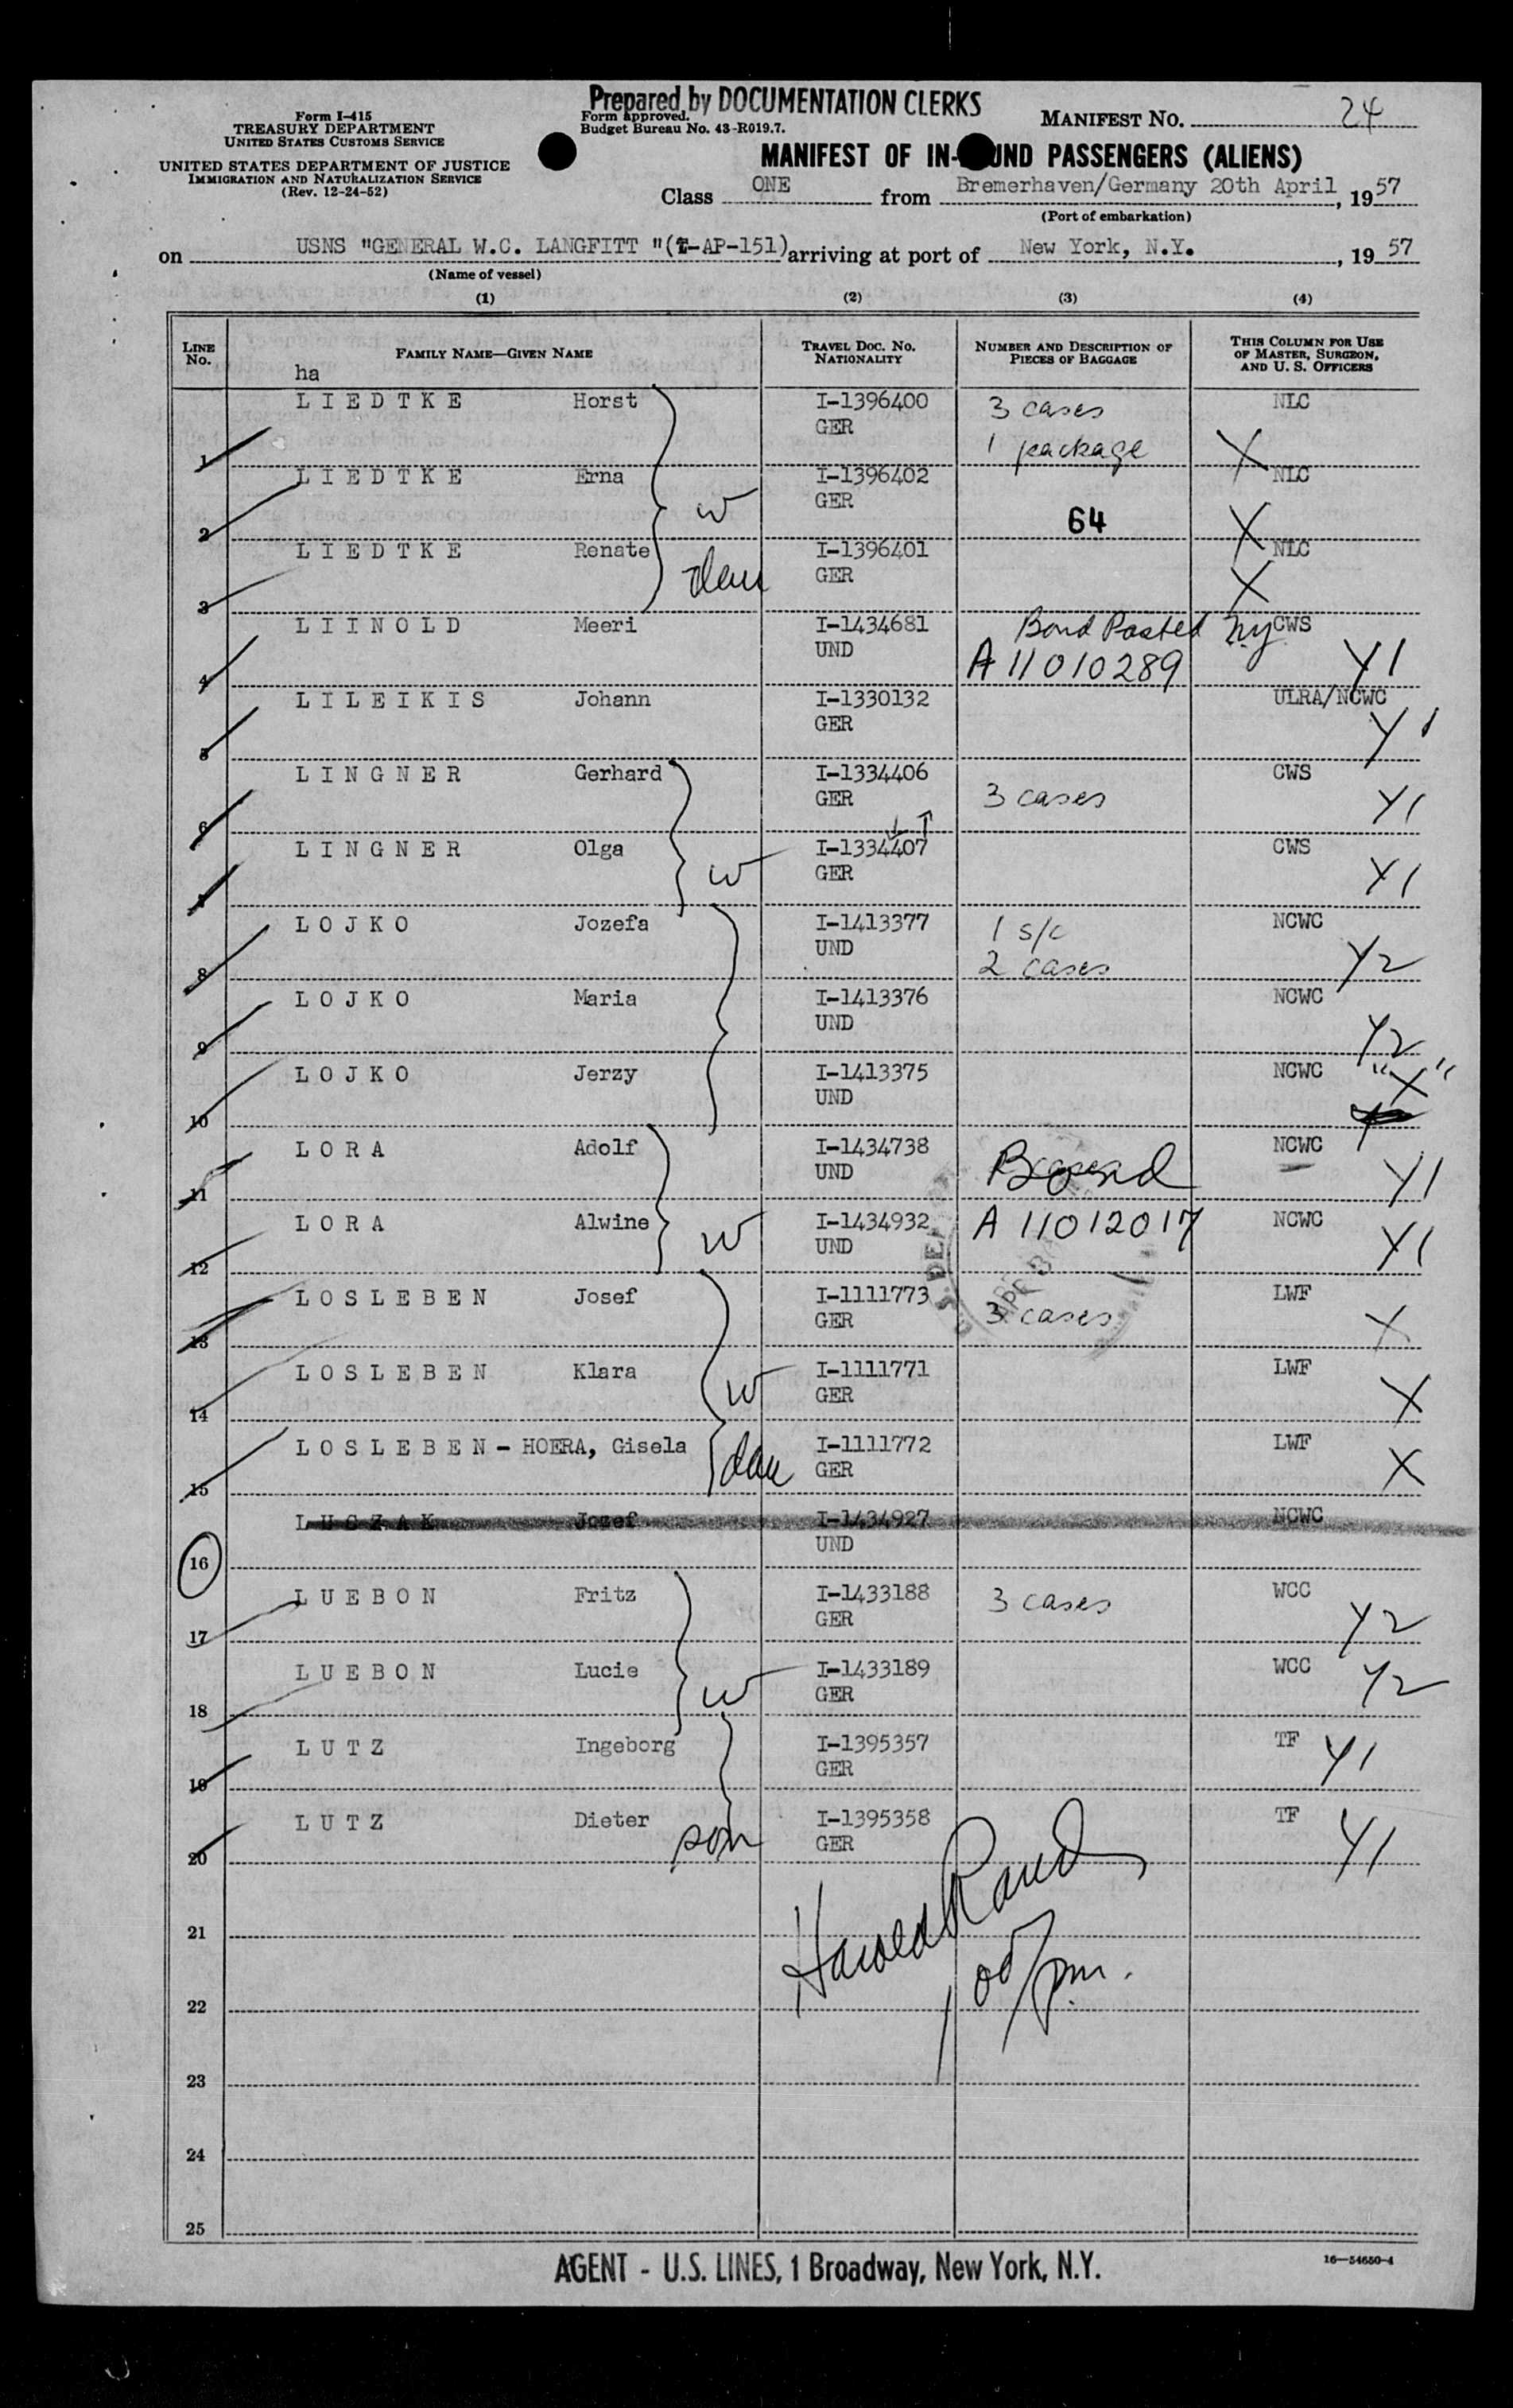 Prepared by DOCUMENTATION CLERKS
Form I-415
TREASURY DEPARTMENT
UNITED STATES CUSTOMS SERVICE
UNITED STATES DEPARTMENT OF JUSTICE
IMMIGRATION AND NATURALIZATION SERVICE
(Rev. 12-24-52)
Form approved.
Budget Bureau No. 43-R019.7.
MANIFEST NO. 24
MANIFEST OF IN- UND PASSENGERS (ALIENS)
Class ONE from Bremerhaven/Germany 20th April, 1957
(Port of embarkation)
on USNS "GENERAL W.C. LANGFITT "(T-AP-151) arriving at port of New York, N.Y., 1957
(Name of vessel)
(1) (2) (3) (4)
LINE NO. FAMILY NAME—GIVEN NAME TRAVEL DOC. NO. NATIONALITY NUMBER AND DESCRIPTION OF PIECES OF BAGGAGE THIS COLUMN FOR USE OF MASTER, SURGEON, AND U. S. OFFICERS
ha
1 LIEDTKE Horst I-1396400 GER 3 cases 1 package NLC X
2 LIEDTKE Erna w I-1396402 GER 64 NLC X
3 LIEDTKE Renate dau I-1396401 GER NLC X
4 LIINOLD Meeri I-1434681 UND Bond Posted NY A 11010289 CWS Y1
5 LILEIKIS Johann I-1330132 GER ULRA/NCWC Y1
6 LINGNER Gerhard I-1334406 GER 3 cases CWS Y1
7 LINGNER Olga w I-1334407 GER CWS Y1
8 LOJKO Jozefa I-1413377 UND 1 s/c 2 cases NCWC Y2
9 LOJKO Maria I-1413376 UND NCWC Y2
10 LOJKO Jerzy I-1413375 UND NCWC "X"
11 LORA Adolf I-1434738 UND Bond NCWC Y1
12 LORA Alwine w I-1434932 UND A 11012017 NCWC Y1
13 LOSLEBEN Josef I-1111773 GER 3 cases LWF X
14 LOSLEBEN Klara w I-1111771 GER LWF X
15 LOSLEBEN - HOERA, Gisela dau I-1111772 GER LWF X
16 LUCZAK Jozef I-1434927 UND NCWC
17 LUEBON Fritz I-1433188 GER 3 cases WCC Y2
18 LUEBON Lucie w I-1433189 GER WCC Y2
19 LUTZ Ingeborg I-1395357 GER TF Y1
20 LUTZ Dieter son I-1395358 GER TF Y1
21
Harold Rand
22
1 00/pm.
23
24
25
AGENT - U.S. LINES, 1 Broadway, New York, N.Y.
16—54650-4